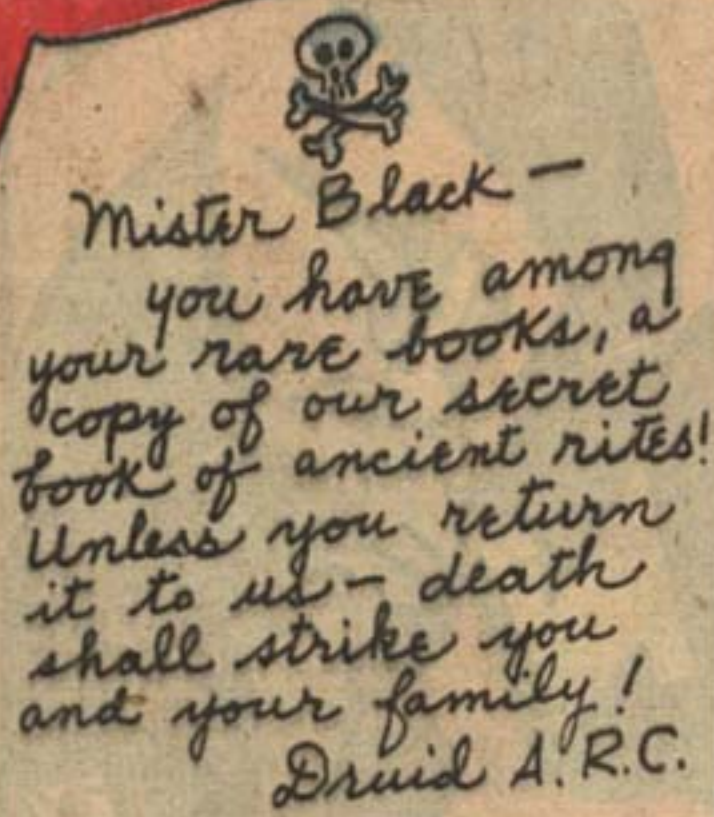 Mister Black —
you have among
your rare books, a
copy of our secret
book of ancient rites!
Unless you return
it to us — death
shall strike you
and your family!
Druid A.R.C.